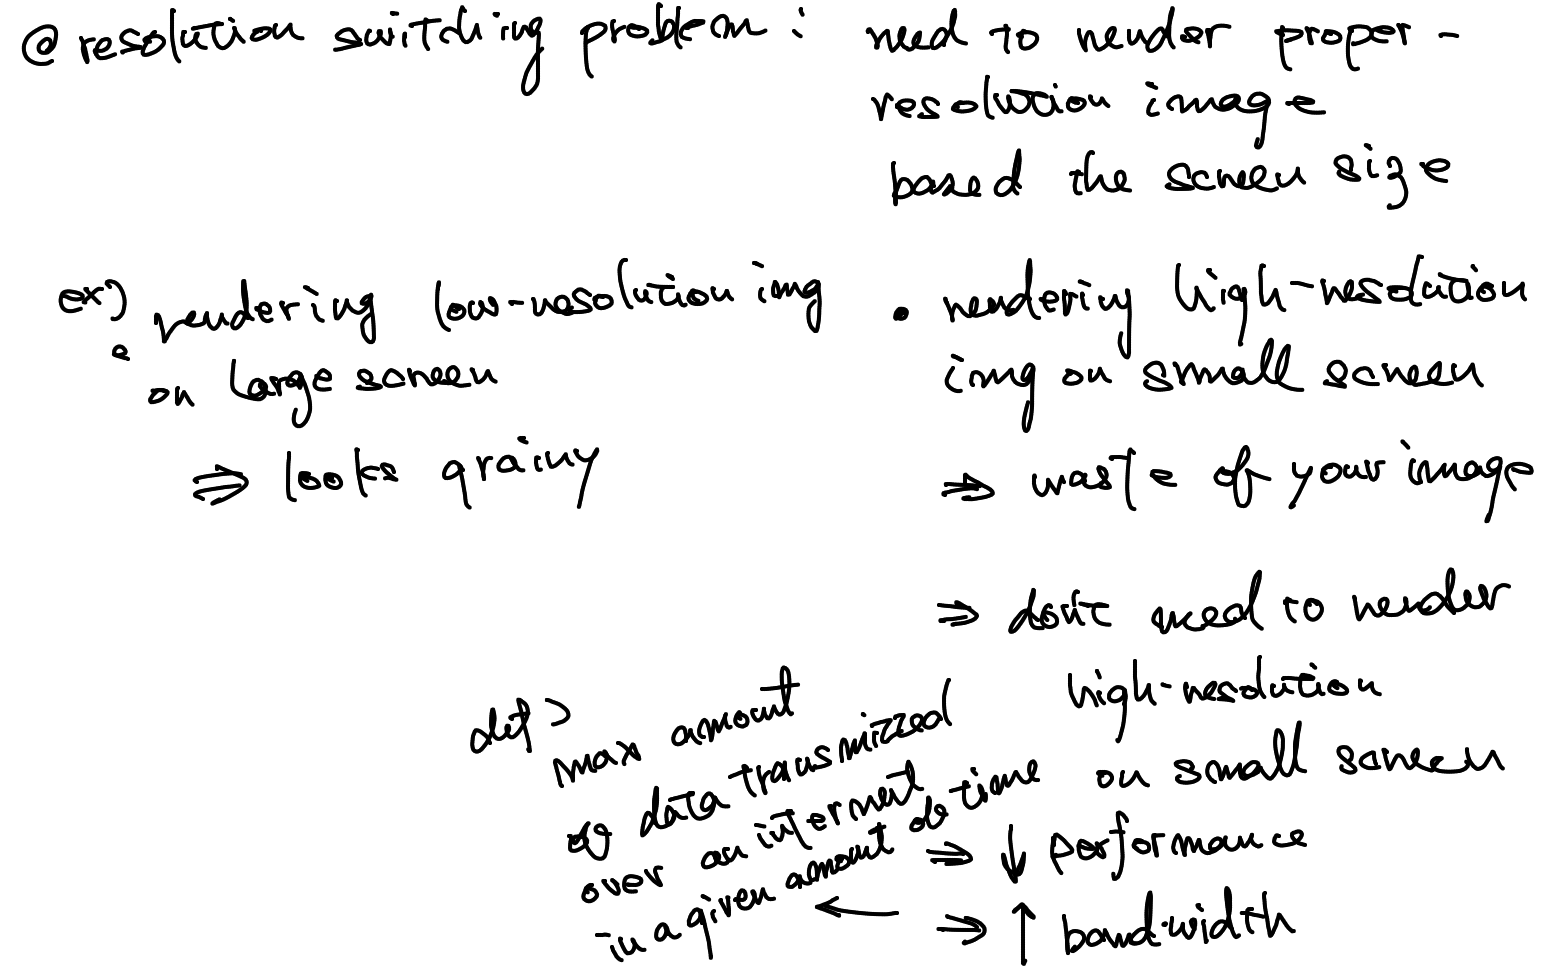 @ resolution switching problem : need to render proper -
resolution image
based the screen size
ex) rendering low-resolution img
on large screen
⇒ looks grainy
• rendering high-resolution
img on small screen
⇒ waste of your image
⇒ don't need to render
high-resolution
on small screen
⇒ ↓ performance
⇒ ↑ bandwidth
←
def >
max amount
of data transmitted
over an internet
in a given amount of time